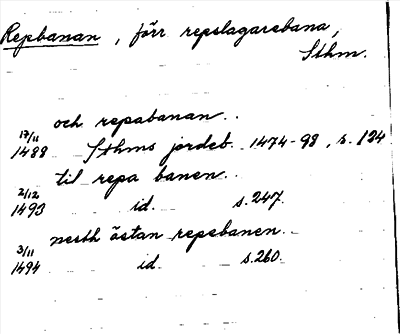 Repbanan, förr repslagarebana,
Sthm.
och repabanan..
17/11 1488 Sthms jordeb. 1474-98, s. 124
til repa banen..
2/12 1493 id. s. 247.
nesth östan repebanen..
3/11 1494 id. s. 260.